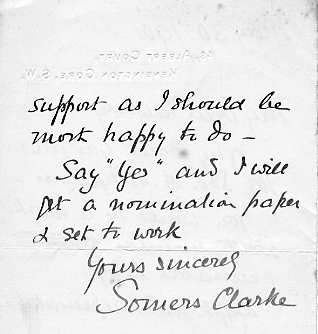 48, ALBERT COURT,
KENSINGTON GORE. S.W.
support as I should be
most happy to do –
Say "Yes" and I will
get a nomination paper
& set to work
Yours sincerely
Somers Clarke